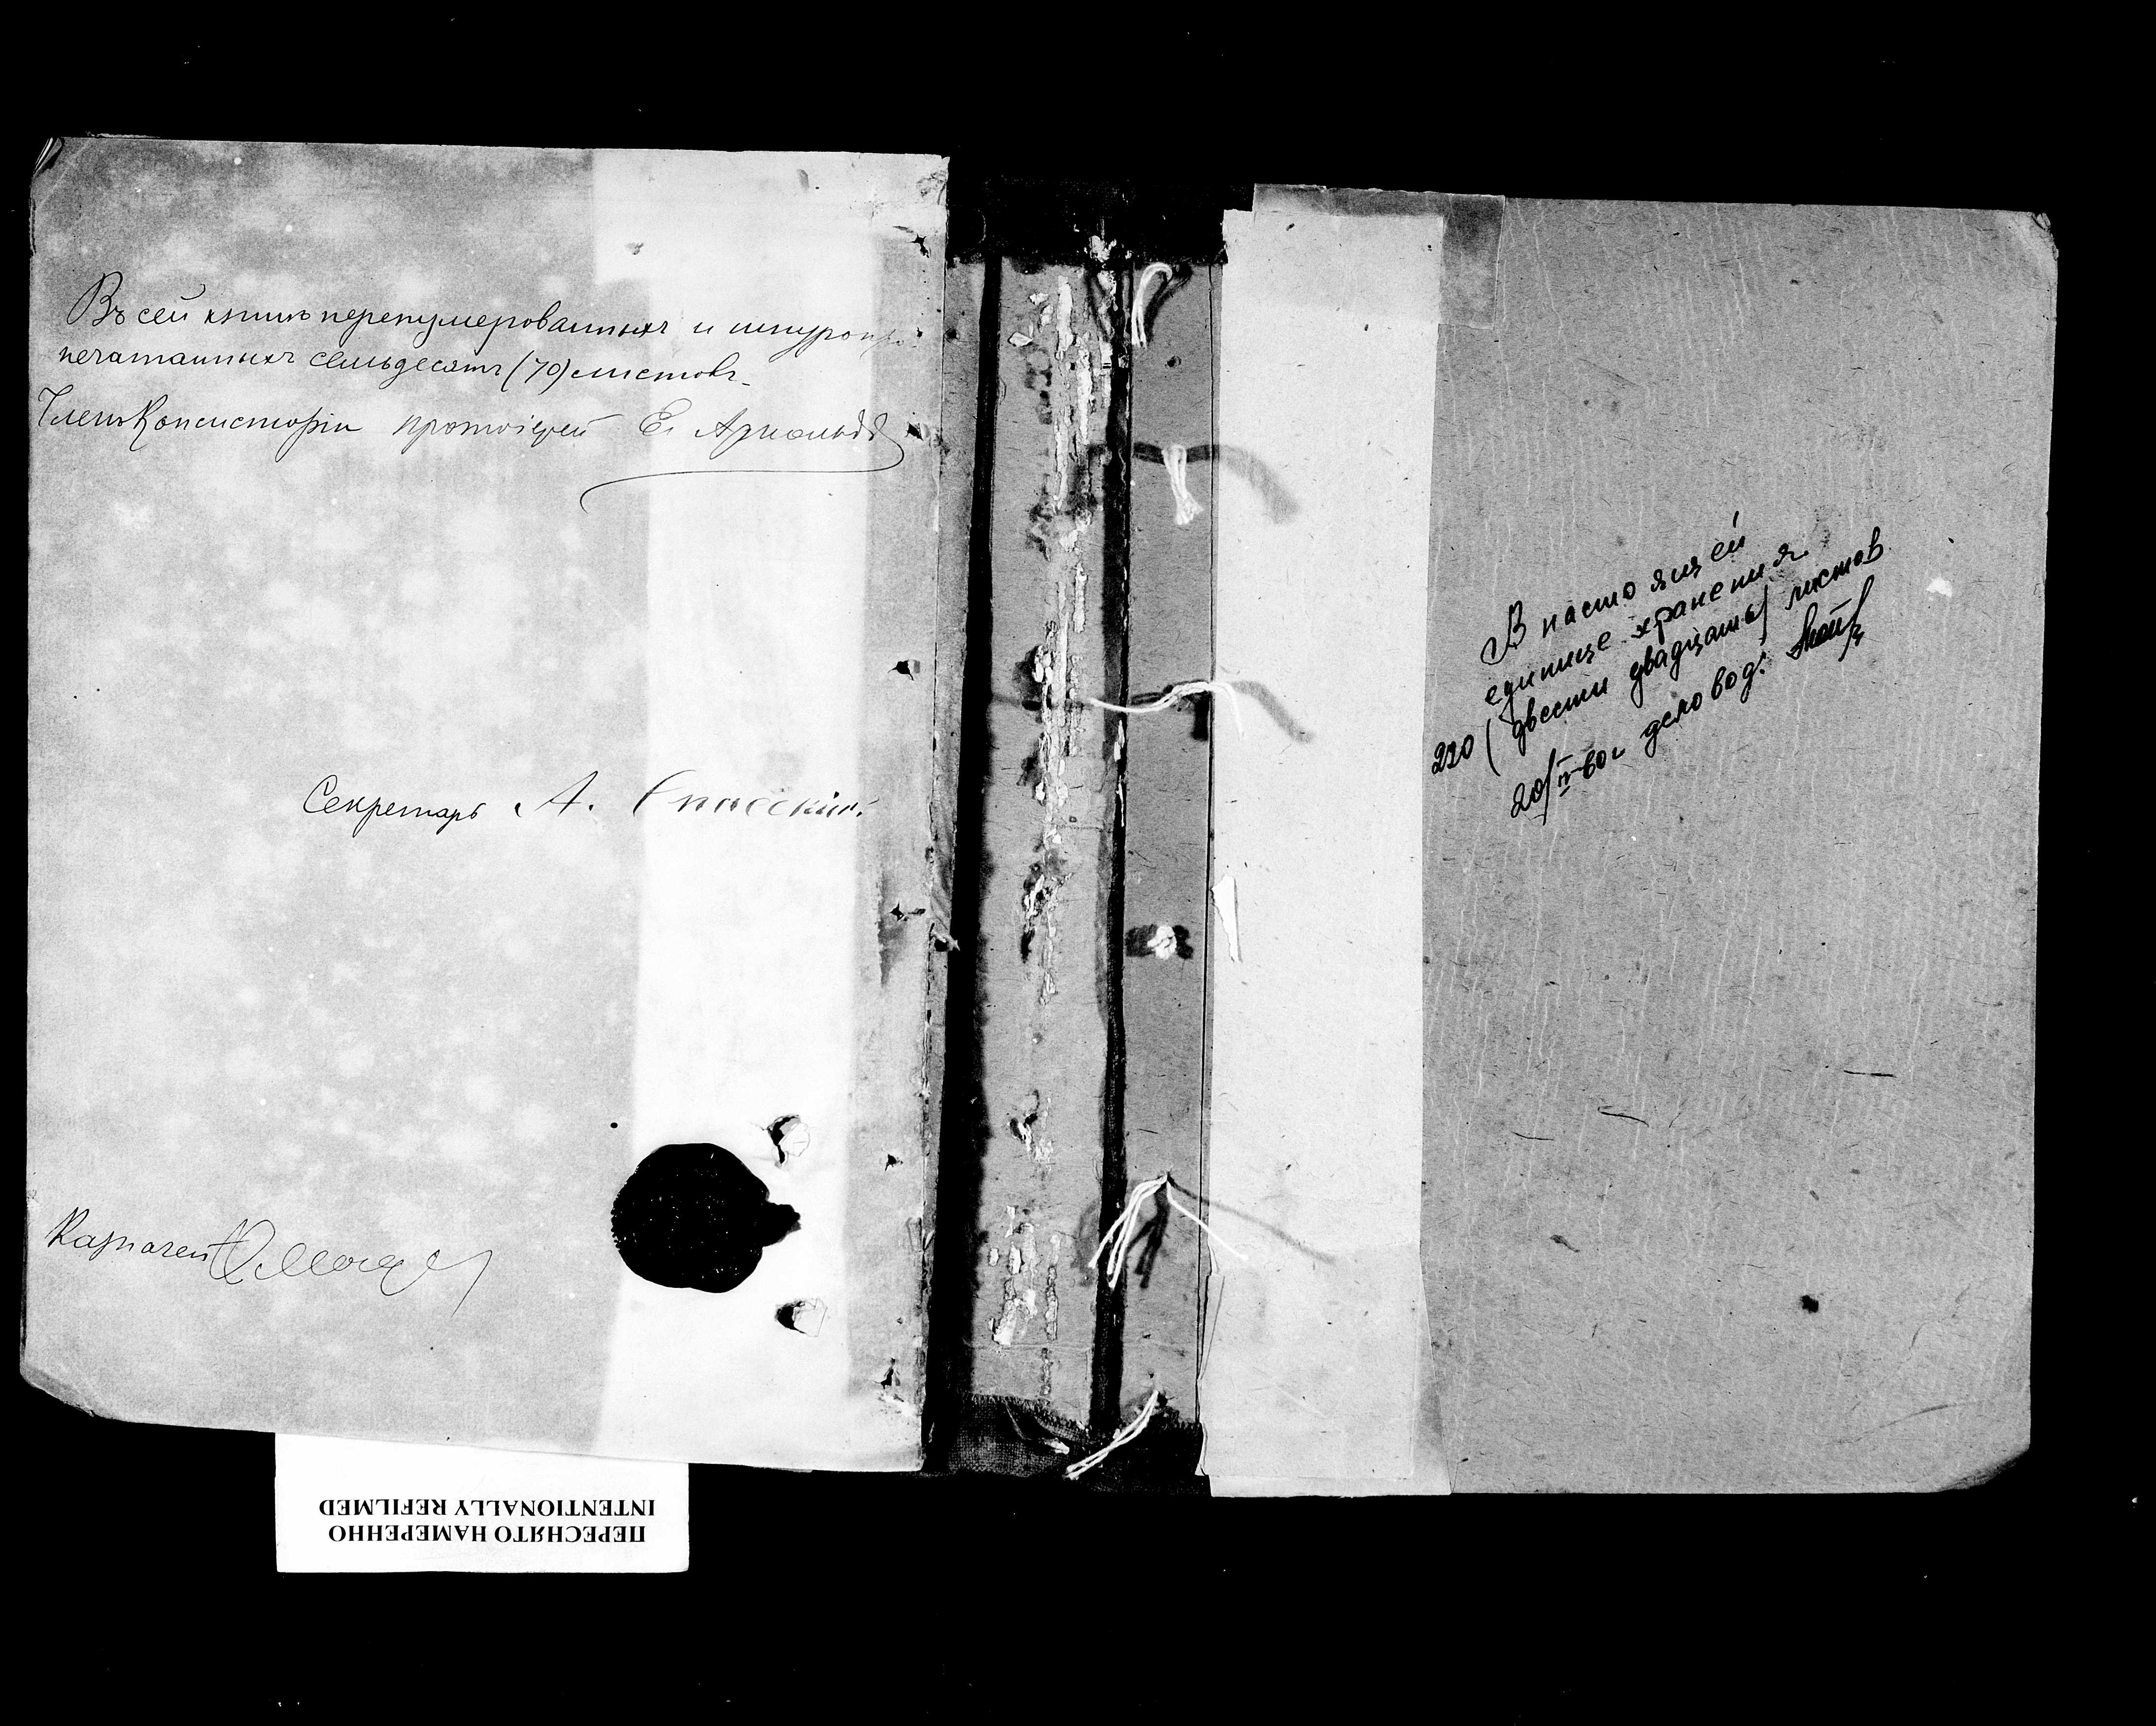 Въ сей книгѣ перенумерованныхъ и шнуропри
печатанныхъ семьдесятъ (70) листовъ.
Членъ Консисторіи протоіерей Е. Арнольдъ
Секретарь А. Спасскій
Казначей
В настоящей
единице хранения
220 (двести двадцать) листов
20/IV-60г деловод:
ПЕРЕСНЯТО НАМЕРЕННО
INTENTIONALLY REFILMED